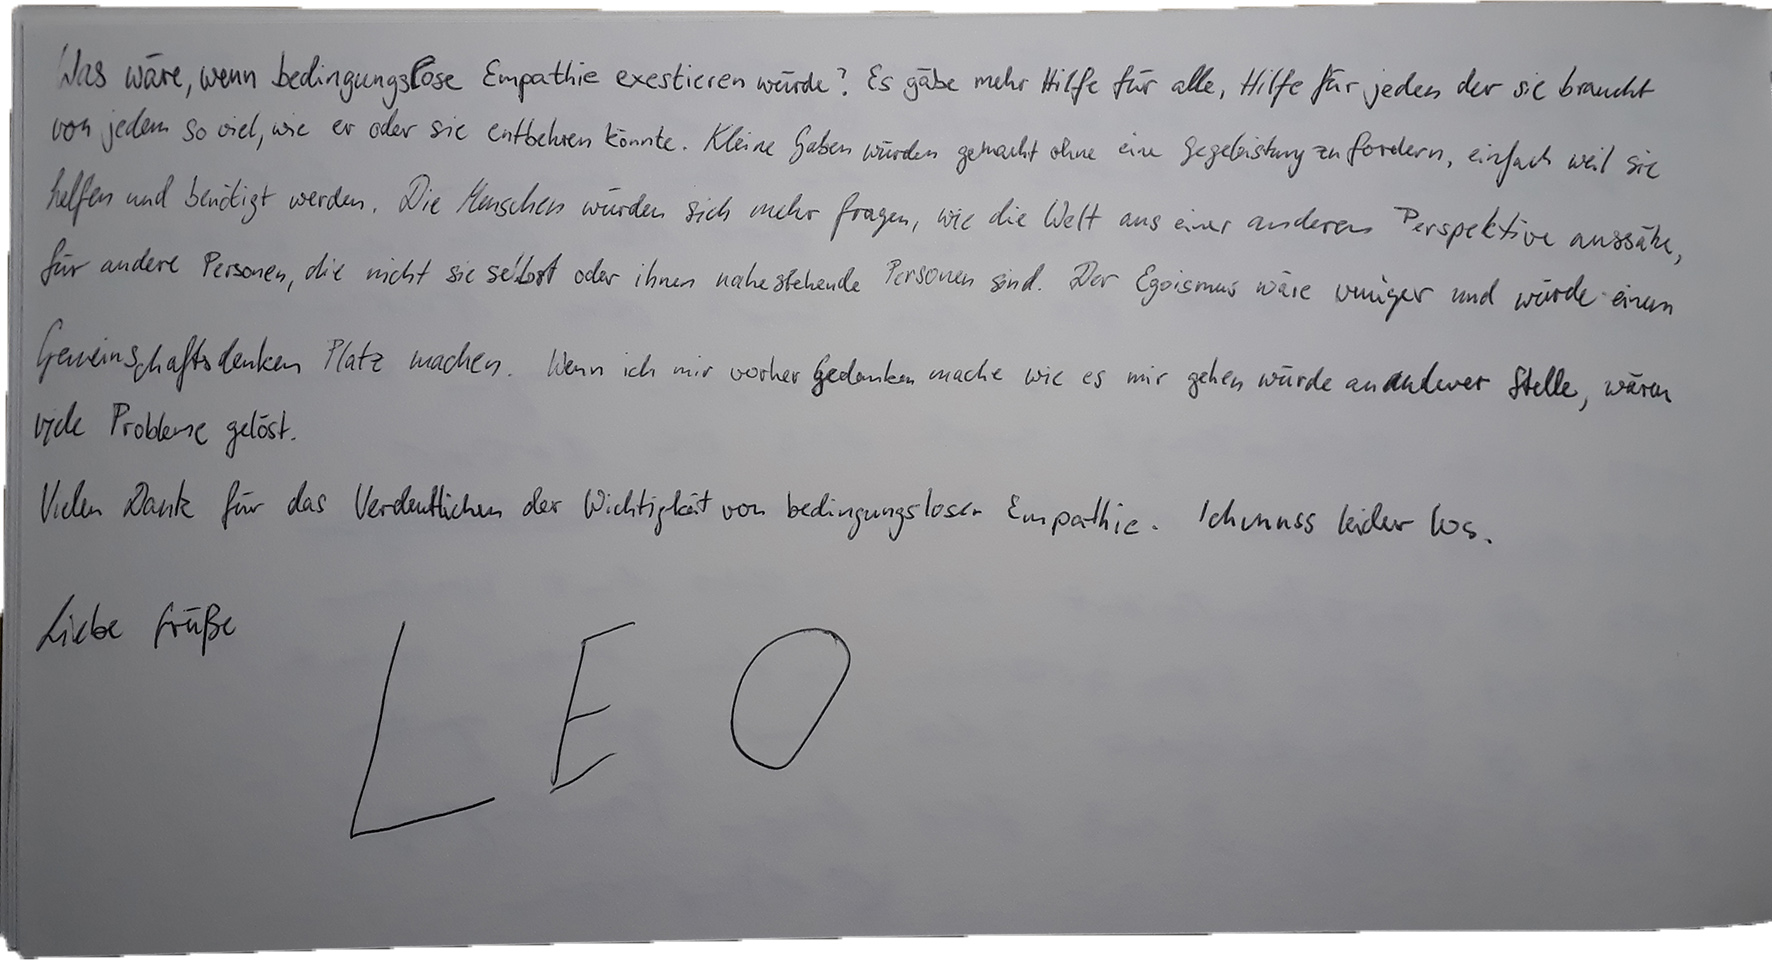 Was wäre, wenn bedingungslose Empathie exestieren würde? Es gäbe mehr Hilfe für alle, Hilfe für jeden der sie braucht
von jedem so viel, wie er oder sie entbehren könnte. Kleine Gaben würden gemacht ohne eine Gegeleistung zu fordern, einfach weil sie
helfen und benötigt werden. Die Menschen würden sich mehr fragen, wie die Welt aus einer anderen Perspektive aussähe,
für andere Personen, die nicht sie selbst oder ihnen nahestehende Personen sind. Der Egoismus wäre weniger und würde einem
Gemeinschaftsdenken Platz machen. Wenn ich mir vorher Gedanken mache wie es mir gehen würde an anderer Stelle, wären
viele Probleme gelöst.
Vielen Dank für das Verdeutlichen der Wichtigkeit von bedingungsloser Empathie. Ich muss leider los.
Liebe Grüße
LEO